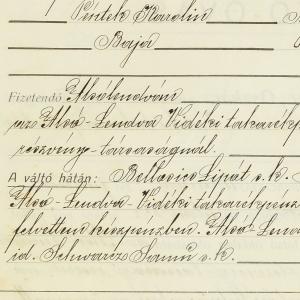 Péntek Karolin
Baja
Fizetendő Alsólendván
per Alsó-Lendva Vidéki takarékp
részvény-társaságnál.
A váltó hátán: Bellavics Lipát s.k.
Alsó-Lendva-Vidéki takarékpénz
felvettem készpénzben. Alsó-Lend
id. Schwarcz Samu s.k.